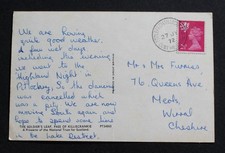 We are having
quite good weather.
A few wet days,
including the evening
we went to the
Highland Night in
Pitlochry. So the dancing
was cancelled which
was a pity. We are now
moving South again and
hope to spend some time
in the Lake District.
THE SOLDIER'S LEAP, PASS OF KILLIECRANKIE
A Property of the National Trust for Scotland
Mr & Mrs
76 Queens Ave
Meols
Wirral
Cheshire